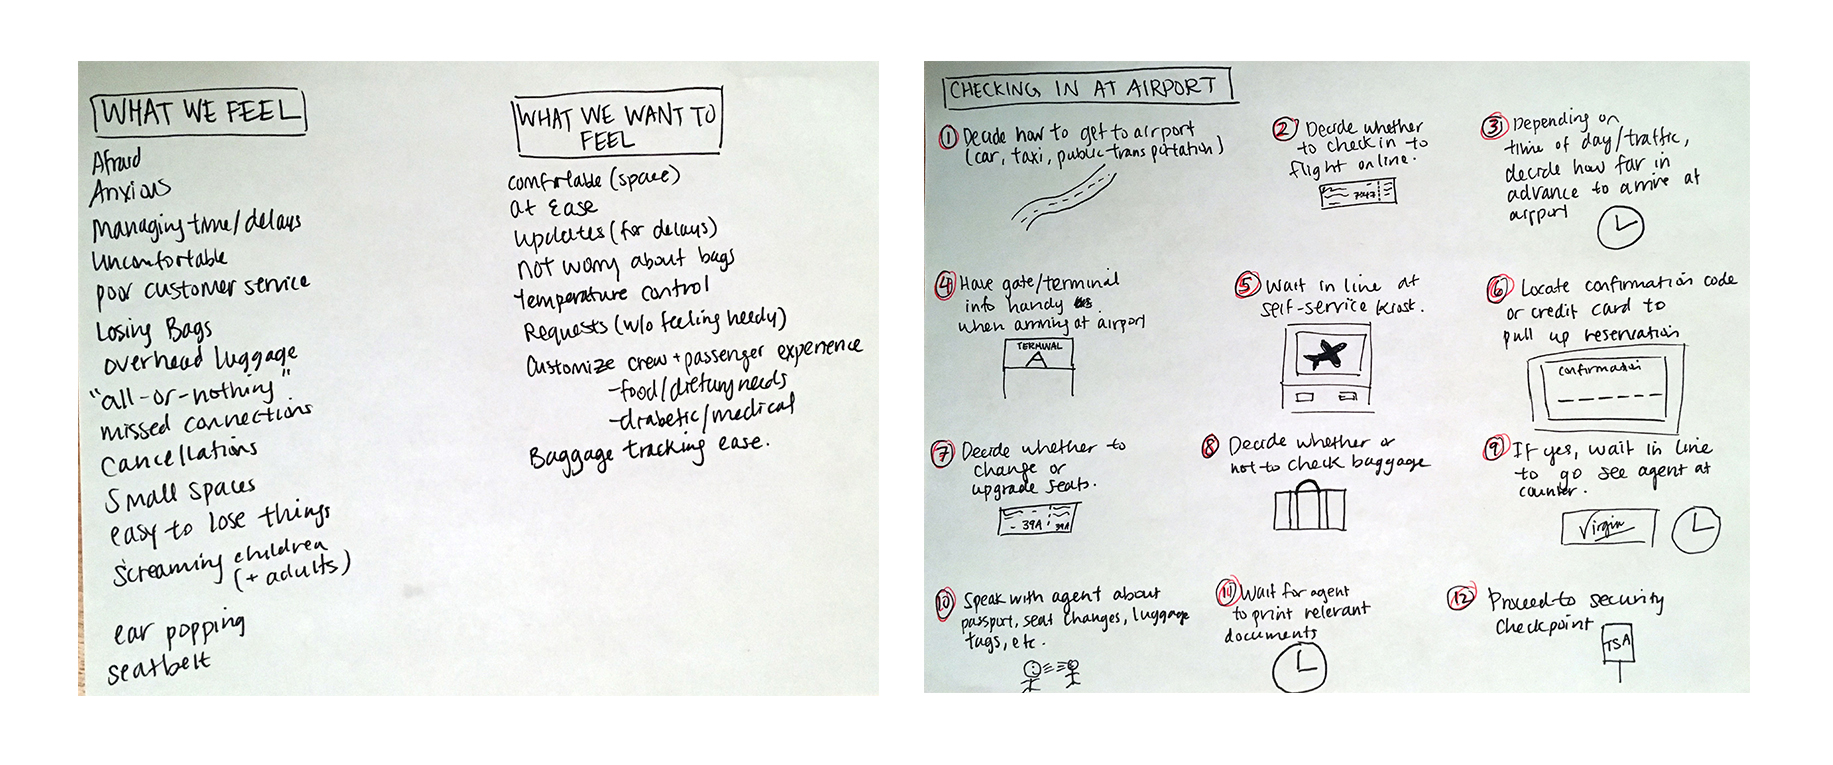 WHAT WE FEEL
Afraid
Anxious
Managing time/delays
Uncomfortable
poor customer service
Losing Bags
overhead luggage
"all-or-nothing"
missed connections
Cancellations
Small spaces
easy to lose things
Screaming children
(+ adults)
ear popping
seatbelt
WHAT WE WANT TO
FEEL
comfortable (space)
at Ease
updates (for delays)
not worry about bags
Temperature control
Requests (w/o feeling needy)
Customize crew + passenger experience
-food/dietary needs
-diabetic/medical
Baggage tracking ease.
CHECKING IN AT AIRPORT
1 Decide how to get to airport
(car, taxi, public transportation)
2 Decide whether
to check in to
flight online.
7047
3 Depending on
time of day/traffic,
decide how far in
advance to arrive at
airport
4 Have gate/terminal
info handy
when arriving at airport
TERMINAL
A
5 Wait in line at
self-service kiosk.
6 Locate confirmation code
or credit card to
pull up reservation
Confirmation
7 Decide whether to
change or
upgrade seats.
39A 39A
8 Decide whether or
not to check baggage
9 If yes, wait in line
to go see agent at
counter.
Virgin
10 Speak with agent about
passport, seat changes, luggage
tags, etc.
11 Wait for agent
to print relevant
documents
12 Proceed to security
checkpoint
TSA